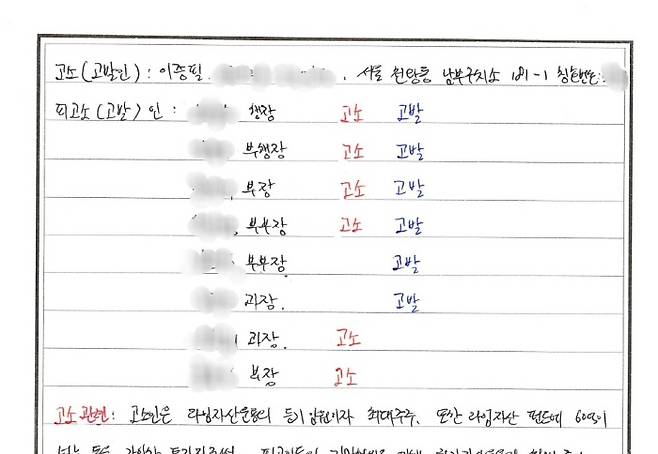 고소(고발인) : 이종필. , 서울 천왕동 남부구치소 181-1 칭호번호:
피고소(고발)인 : 행장 고소 고발
부행장 고소 고발
부장 고소 고발
부부장 고소 고발
부부장. 고발
과장. 고발
과장. 고소
부장 고소
고소관련: 고소인은 라임자산운용의 등기임원이자 최대주주. 또한 라임자산 펀드에 60억이